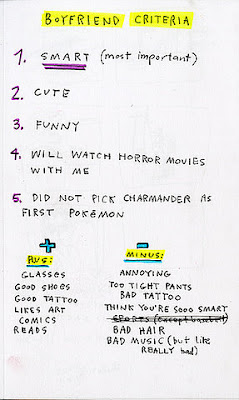 BOYFRIEND CRITERIA
1. SMART (most important)
2. CUTE
3. FUNNY
4. WILL WATCH HORROR MOVIES
WITH ME
5. DID NOT PICK CHARMANDER AS
FIRST POKÉMON
+
PLUS:
GLASSES
GOOD SHOES
GOOD TATTOO
LIKES ART
COMICS
READS
-
MINUS:
ANNOYING
TOO TIGHT PANTS
BAD TATTOO
THINK YOU'RE SOOO SMART
SPORTS (except baseball)
BAD HAIR
BAD MUSIC (but like
REALLY bad)